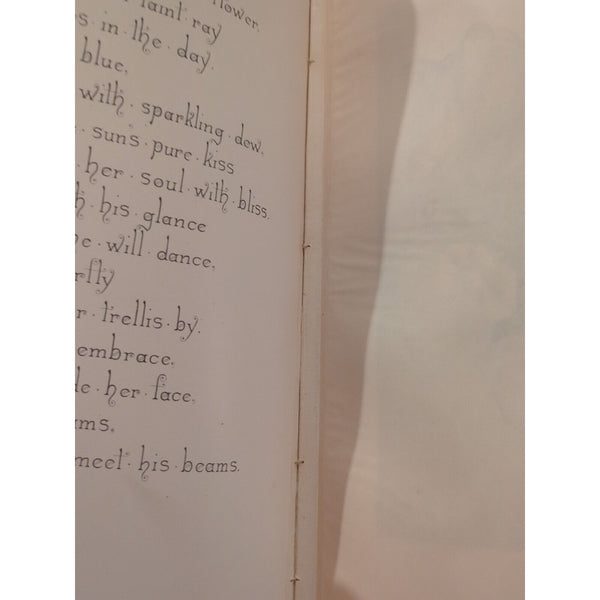 flower,
faint · ray
in · the · day.
blue,
with · sparkling · dew,
suns · pure · kiss
her · soul · with · bliss.
his · glance
will · dance,
trellis · by.
embrace,
her · face,
meet · his · beams.